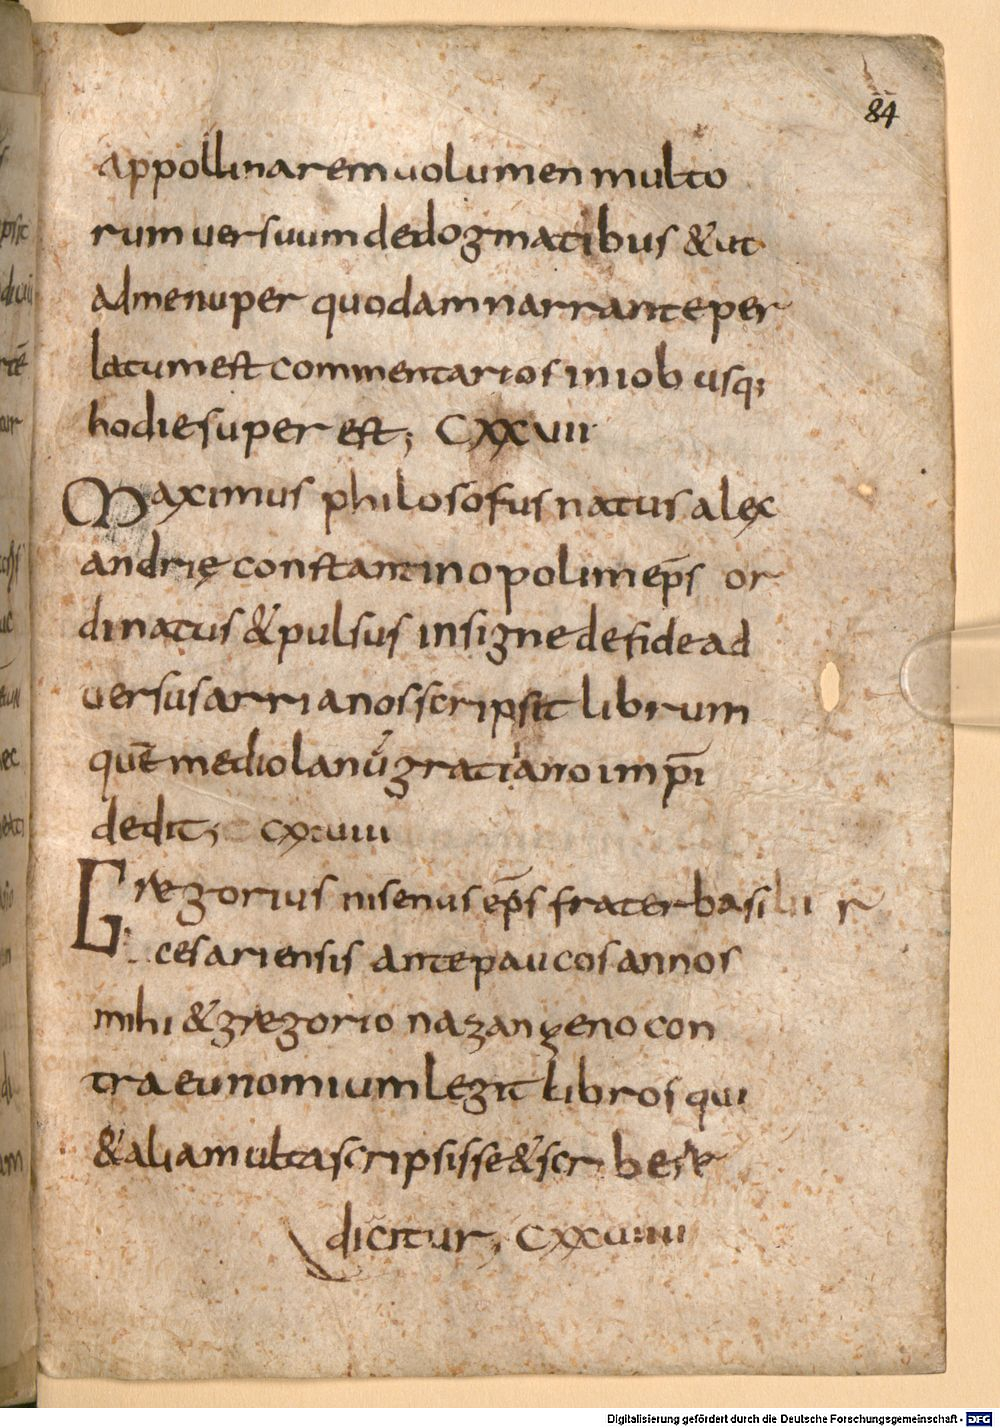 84
appollinarem uolumen multo
rum uersuum de dogmatibus & ut
ad me nuper quodam narrante per
latum est commentarios in iob usq;
hodie super est; CXXVII
Maximus philosofus natus alex
andrię constantinopolim ep̄s or
dinatus & pulsus insigne de fide ad
uersus arrianos scripsit librum
quē mediolanū gratiano imp̄i
dedit; CXXVIII
Gregorius nisenus ep̄s frater basilii
cesariensis ante paucos annos
mihi & gregorio nazanzeno con
tra eunomium legit libros qui
& alia multa scripsisse & scribere
dicitur; CXXVIIII
Digitalisierung gefördert durch die Deutsche Forschungsgemeinschaft - DFG